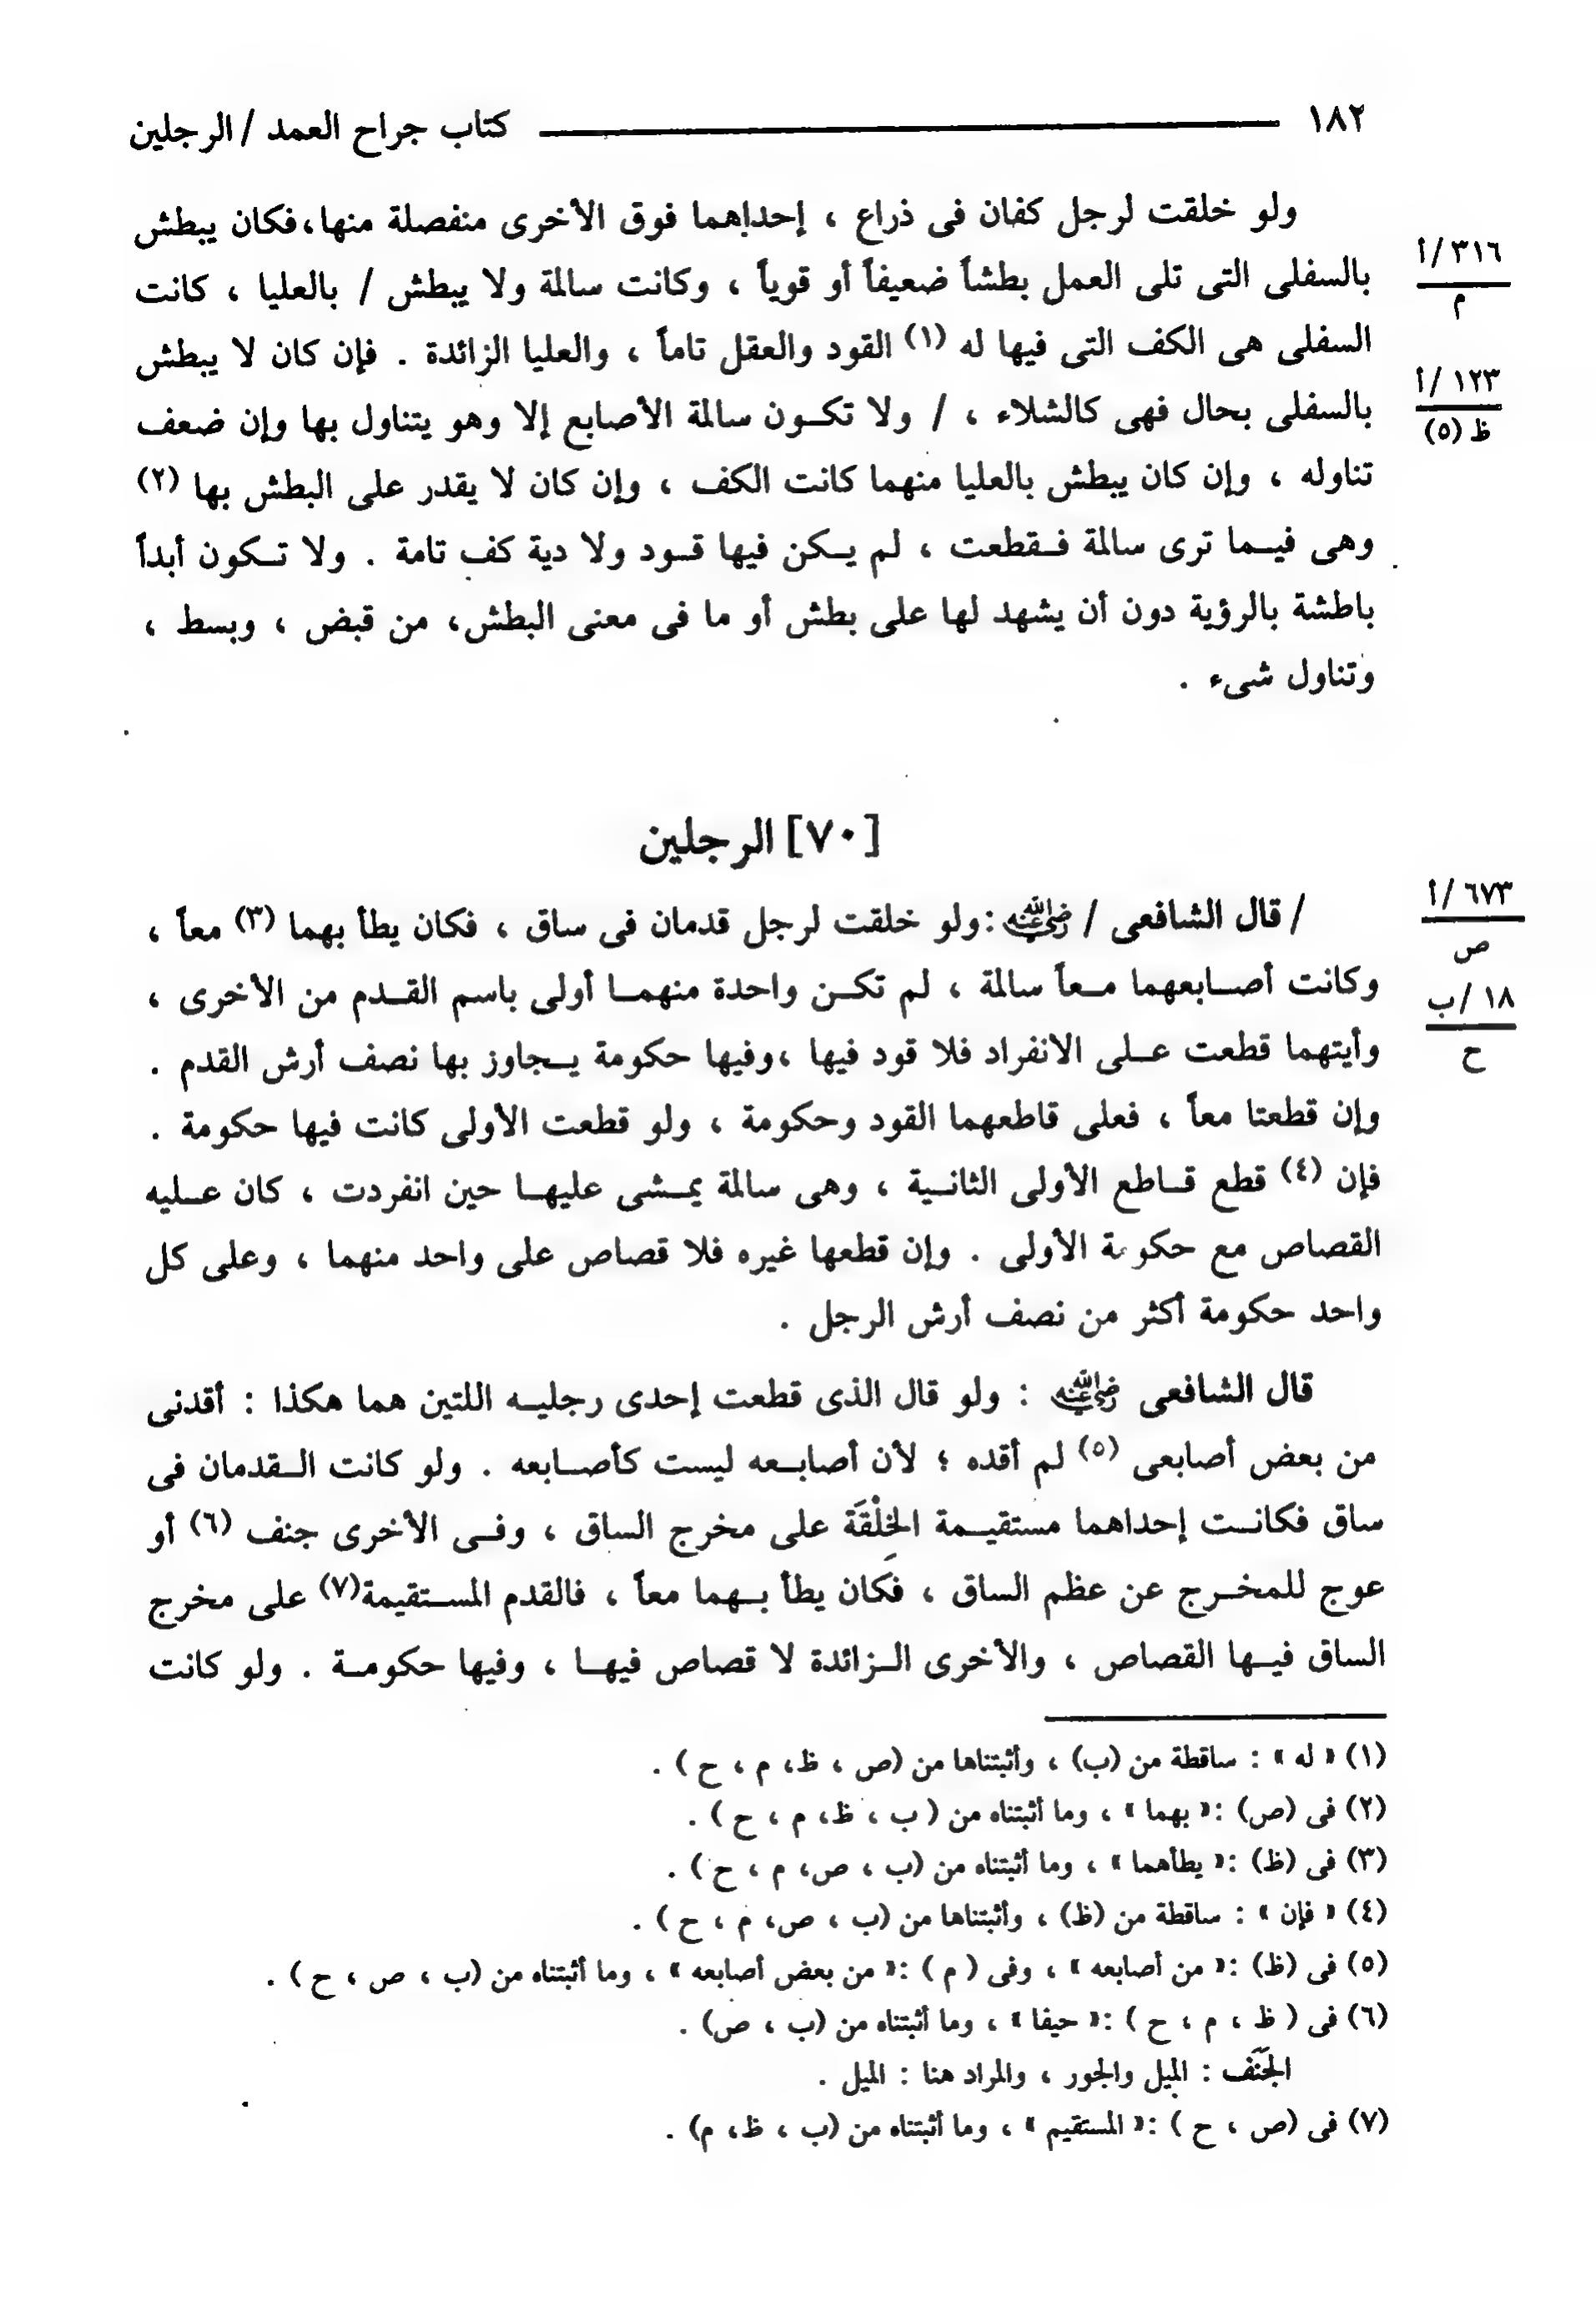 ١٨٢ كتاب جراح العمد / الرجلين
ولو خلقت لرجل كفان فى ذراع ، إحداهما فوق الأخرى منفصلة منها،فكان يبطش
بالسفلى التى تلى العمل بطشاً ضعيفاً أو قوياً ، وكانت سالمة ولا يبطش / بالعليا ، كانت
٣١٦/أ
م
السفلى هى الكف التى فيها له (١) القود والعقل تاماً ، والعليا الزائدة . فإن كان لا يبطش
بالسفلى بحال فهى كالشلاء ، / ولا تكـون سالمة الأصابع إلا وهو يتناول بها وإن ضعف
١٢٣/أ
ظ (٥)
تناوله ، وإن كان يبطش بالعليا منهما كانت الكف ، وإن كان لا يقدر على البطش بها (٢)
وهى فيـما ترى سالمة فـقطعت ، لم يـكن فيها قـود ولا دية كف تامة . ولا تـكون أبداً
باطشة بالرؤية دون أن يشهد لها على بطش أو ما فى معنى البطش، من قبض ، وبسط ،
وتناول شىء .
[٧٠] الرجلين
/ قال الشافعى / رضي الله عنه :ولو خلقت لرجل قدمان فى ساق ، فكان يطأ بهما (٣) معاً ،
٦٧٣/أ
ص
وكانت أصـابعهما مـعاً سالمة ، لم تكـن واحدة منهمـا أولى باسم القـدم من الأخرى ،
١٨/ب
ح
وأيتهما قطعت عـلى الانفراد فلا قود فيها ،وفيها حكومة يـجاوز بها نصف أرش القدم .
وإن قطعتا معاً ، فعلى قاطعهما القود وحكومة ، ولو قطعت الأولى كانت فيها حكومة .
فإن (٤) قطع قـاطع الأولى الثانـية ، وهى سالمة يمـشى عليهـا حين انفردت ، كان عـليه
القصاص مع حكومة الأولى . وإن قطعها غيره فلا قصاص على واحد منهما ، وعلى كل
واحد حكومة أكثر من نصف أرش الرجل .
قال الشافعى رضي الله عنه : ولو قال الذى قطعت إحدى رجليـه اللتين هما هكذا : أقدنى
من بعض أصابعى (٥) لم أقده ؛ لأن أصابـعه ليست كأصـابعه . ولو كانت الـقدمان فى
ساق فكانـت إحداهما مستقيـمة الخلْقَة على مخرج الساق ، وفـى الأخرى جنف (٦) أو
عوج للمخـرج عن عظم الساق ، فكان يطأ بـهما معاً ، فالقدم المسـتقيمة(٧) على مخرج
الساق فيـها القصاص ، والأخرى الـزائدة لا قصاص فيهـا ، وفيها حكومـة . ولو كانت
(١) « له » : ساقطة من (ب) ، وأثبتناها من (ص ، ظ، م ، ح ) .
(٢) فى (ص) :« بهما » ، وما أثبتناه من ( ب ، ظ، م ، ح ) .
(٣) فى (ظ) :« يطأهما » ، وما أثبتناه من (ب ، ص، م ، ح ) .
(٤) « فإن » : ساقطة من (ظ) ، وأثبتناها من (ب ، ص، م ، ح ) .
(٥) فى (ظ) :« من أصابعه » ، وفى ( م ) :« من بعض أصابعه » ، وما أثبتناه من (ب ، ص ، ح ) .
(٦) فى ( ظ ، م ، ح ) :« حيفا » ، وما أثبتناه من (ب ، ص) .
الجَنَف : الميل والجور ، والمراد هنا : الميل .
(٧) فى (ص ، ح ) :« المستقيم » ، وما أثبتناه من (ب ، ظ، م) .